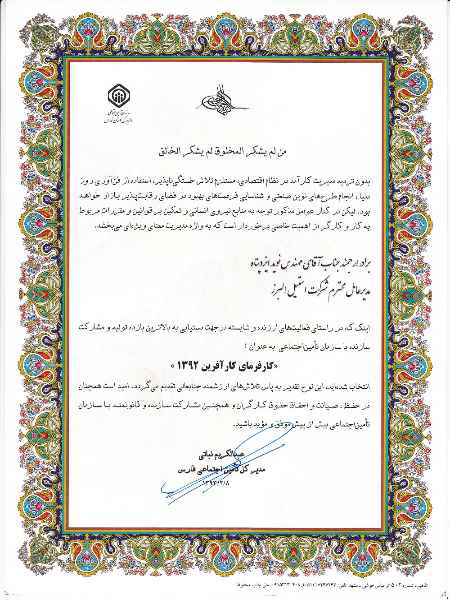 من لم یشکر المخلوق لم یشکر الخالق
بدون تردید مدیریت کارآمد در نظام اقتصادی، مستلزم تلاش خستگی‌ناپذیر، استفاده از فن‌آوری روز
دنیا، انجام طرح‌های نوین صنعتی و شناسایی فرصت‌های بهبود در فضای رقابت‌پذیر بازار خواهد
بود. لیکن در کنار عوامل مذکور توجه به منابع نیروی انسانی و تمکین بر قوانین و مقررات مربوط
به کار و کارگر از اهمیت خاصی برخوردار است که به واژه مدیریت معنای ویژه‌ای می‌بخشد.
برادر ارجمند جناب آقای مهندس نوید ایزدپناه
مدیرعامل محترم شرکت استیل البرز
اینک که در راستای فعالیت‌های ارزنده و شایسته درجهت دستیابی به بالاترین بازده تولید و مشارکت
سازنده با سازمان تأمین‌اجتماعی به عنوان :
«کارفرمای کارآفرین ۱۳۹۲ »
انتخاب شده‌اید، این لوح تقدیر به پاس تلاش‌های ارزشمند جنابعالی تقدیم می‌گردد. امید است همچنان
در حفظ، صیانت و احقاق حقوق کارگران و همچنین مشارکت سازنده و قانونمند با سازمان
تأمین‌اجتماعی بیش از پیش موفق و مؤید باشید.
عبدالکریم نباتی
مدیر کل تأمین اجتماعی فارس